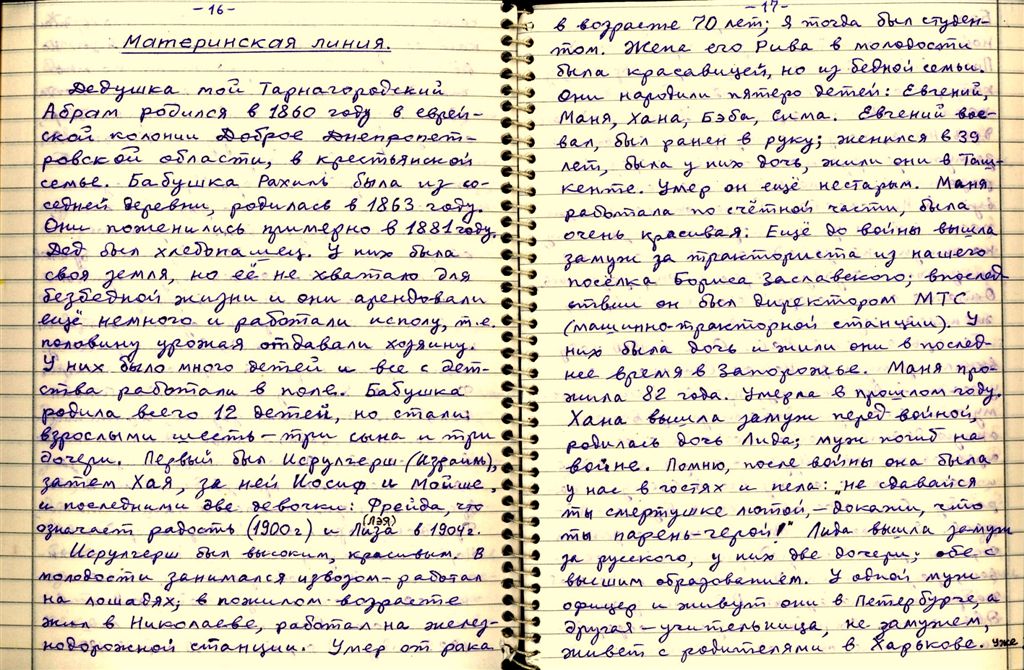 -16-
Материнская линия.
Дедушка мой Тарнагородский
Абрам родился в 1860 году в еврей-
ской колонии Доброе Днепропет-
ровской области, в крестьянской
семье. Бабушка Рахиль была из со-
седней деревни, родилась в 1863 году.
Они поженились примерно в 1881 году.
Дед был хлебопашец. У них была
своя земля, но её не хватало для
безбедной жизни и они арендовали
ещё немного и работали исполу, т.е.
половину урожая отдавали хозяину.
У них было много детей и все с дет-
ства работали в поле. Бабушка
родила всего 12 детей, но стали
взрослыми шесть – три сына и три
дочери. Первый был Исрулгерш (Израиль),
затем Хая, за ней Иосиф и Мойше,
и последними две девочки: Фрейда, что
означает радость (1900г) и Лиза (Лэя) в 1904г.
Исрулгерш был высоким, красивым. В
молодости занимался извозом – работал
на лошадях; в пожилом возрасте
жил в Николаеве, работал на желез-
нодорожной станции. Умер от рака
-17-
в возрасте 70 лет; я тогда был студен-
том. Жена его Рива в молодости
была красавицей, но из бедной семьи.
Они народили пятеро детей: Евгений,
Маня, Хана, Бэба, Сима. Евгений вое-
вал, был ранен в руку; женился в 39
лет, была у них дочь, жили они в Таш-
кенте. Умер он ещё нестарым. Маня
работала по счётной части, была
очень красивая. Ещё до войны вышла
замуж за тракториста из нашего
посёлка Бориса Заславского; впослед-
ствии он был директором МТС
(машинно-тракторной станции). У
них была дочь и жили они в послед-
нее время в Запорожье. Маня про-
жила 82 года. Умерла в прошлом году.
Хана вышла замуж перед войной,
родилась дочь Лида; муж погиб на
войне. Помню, после войны она была
у нас в гостях и пела: „не сдавайся
ты смертушке лютой, – докажи, что
ты парень-герой!" Лида вышла замуж
за русского, у них две дочери; обе с
высшим образованием. У одной муж
офицер и живут они в Петербурге, а
другая – учительница, не замужем,
живёт с родителями в Харькове. Уже